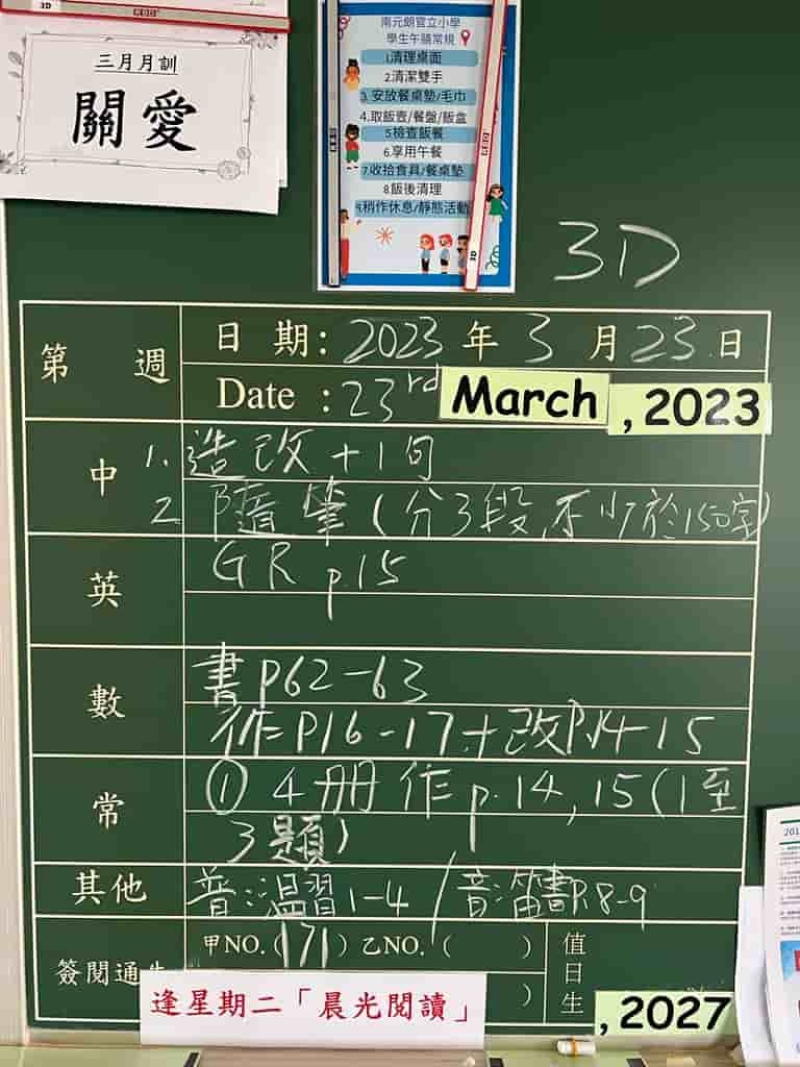 三月月訓
關愛
南元朗官立小學
學生午膳常規
1.清理桌面
2.清潔雙手
3.安放餐桌墊/毛巾
4.取飯壺/餐盤/飯盒
5.檢查飯餐
6.享用午餐
7.收拾食具/餐桌墊
8.飯後清理
9.稍作休息/靜態活動
3D
第 週
日 期: 2023 年 3 月 23 日
Date : 23rd March , 2023
中
1. 造 改 + 1 句
2. 隨筆 (分3段,不少於150字)
英
GR p.15
數
書 P62-63
作 P16-17 + 改P.14-15
常
① 4冊 作 p.14, 15 (1至
3題)
其他
普:溫習 1-4 / 音:笛書P.8-9
簽閱通告
甲NO.(171) 乙NO.( )
)
值日生
逢星期二「晨光閱讀」
, 2027